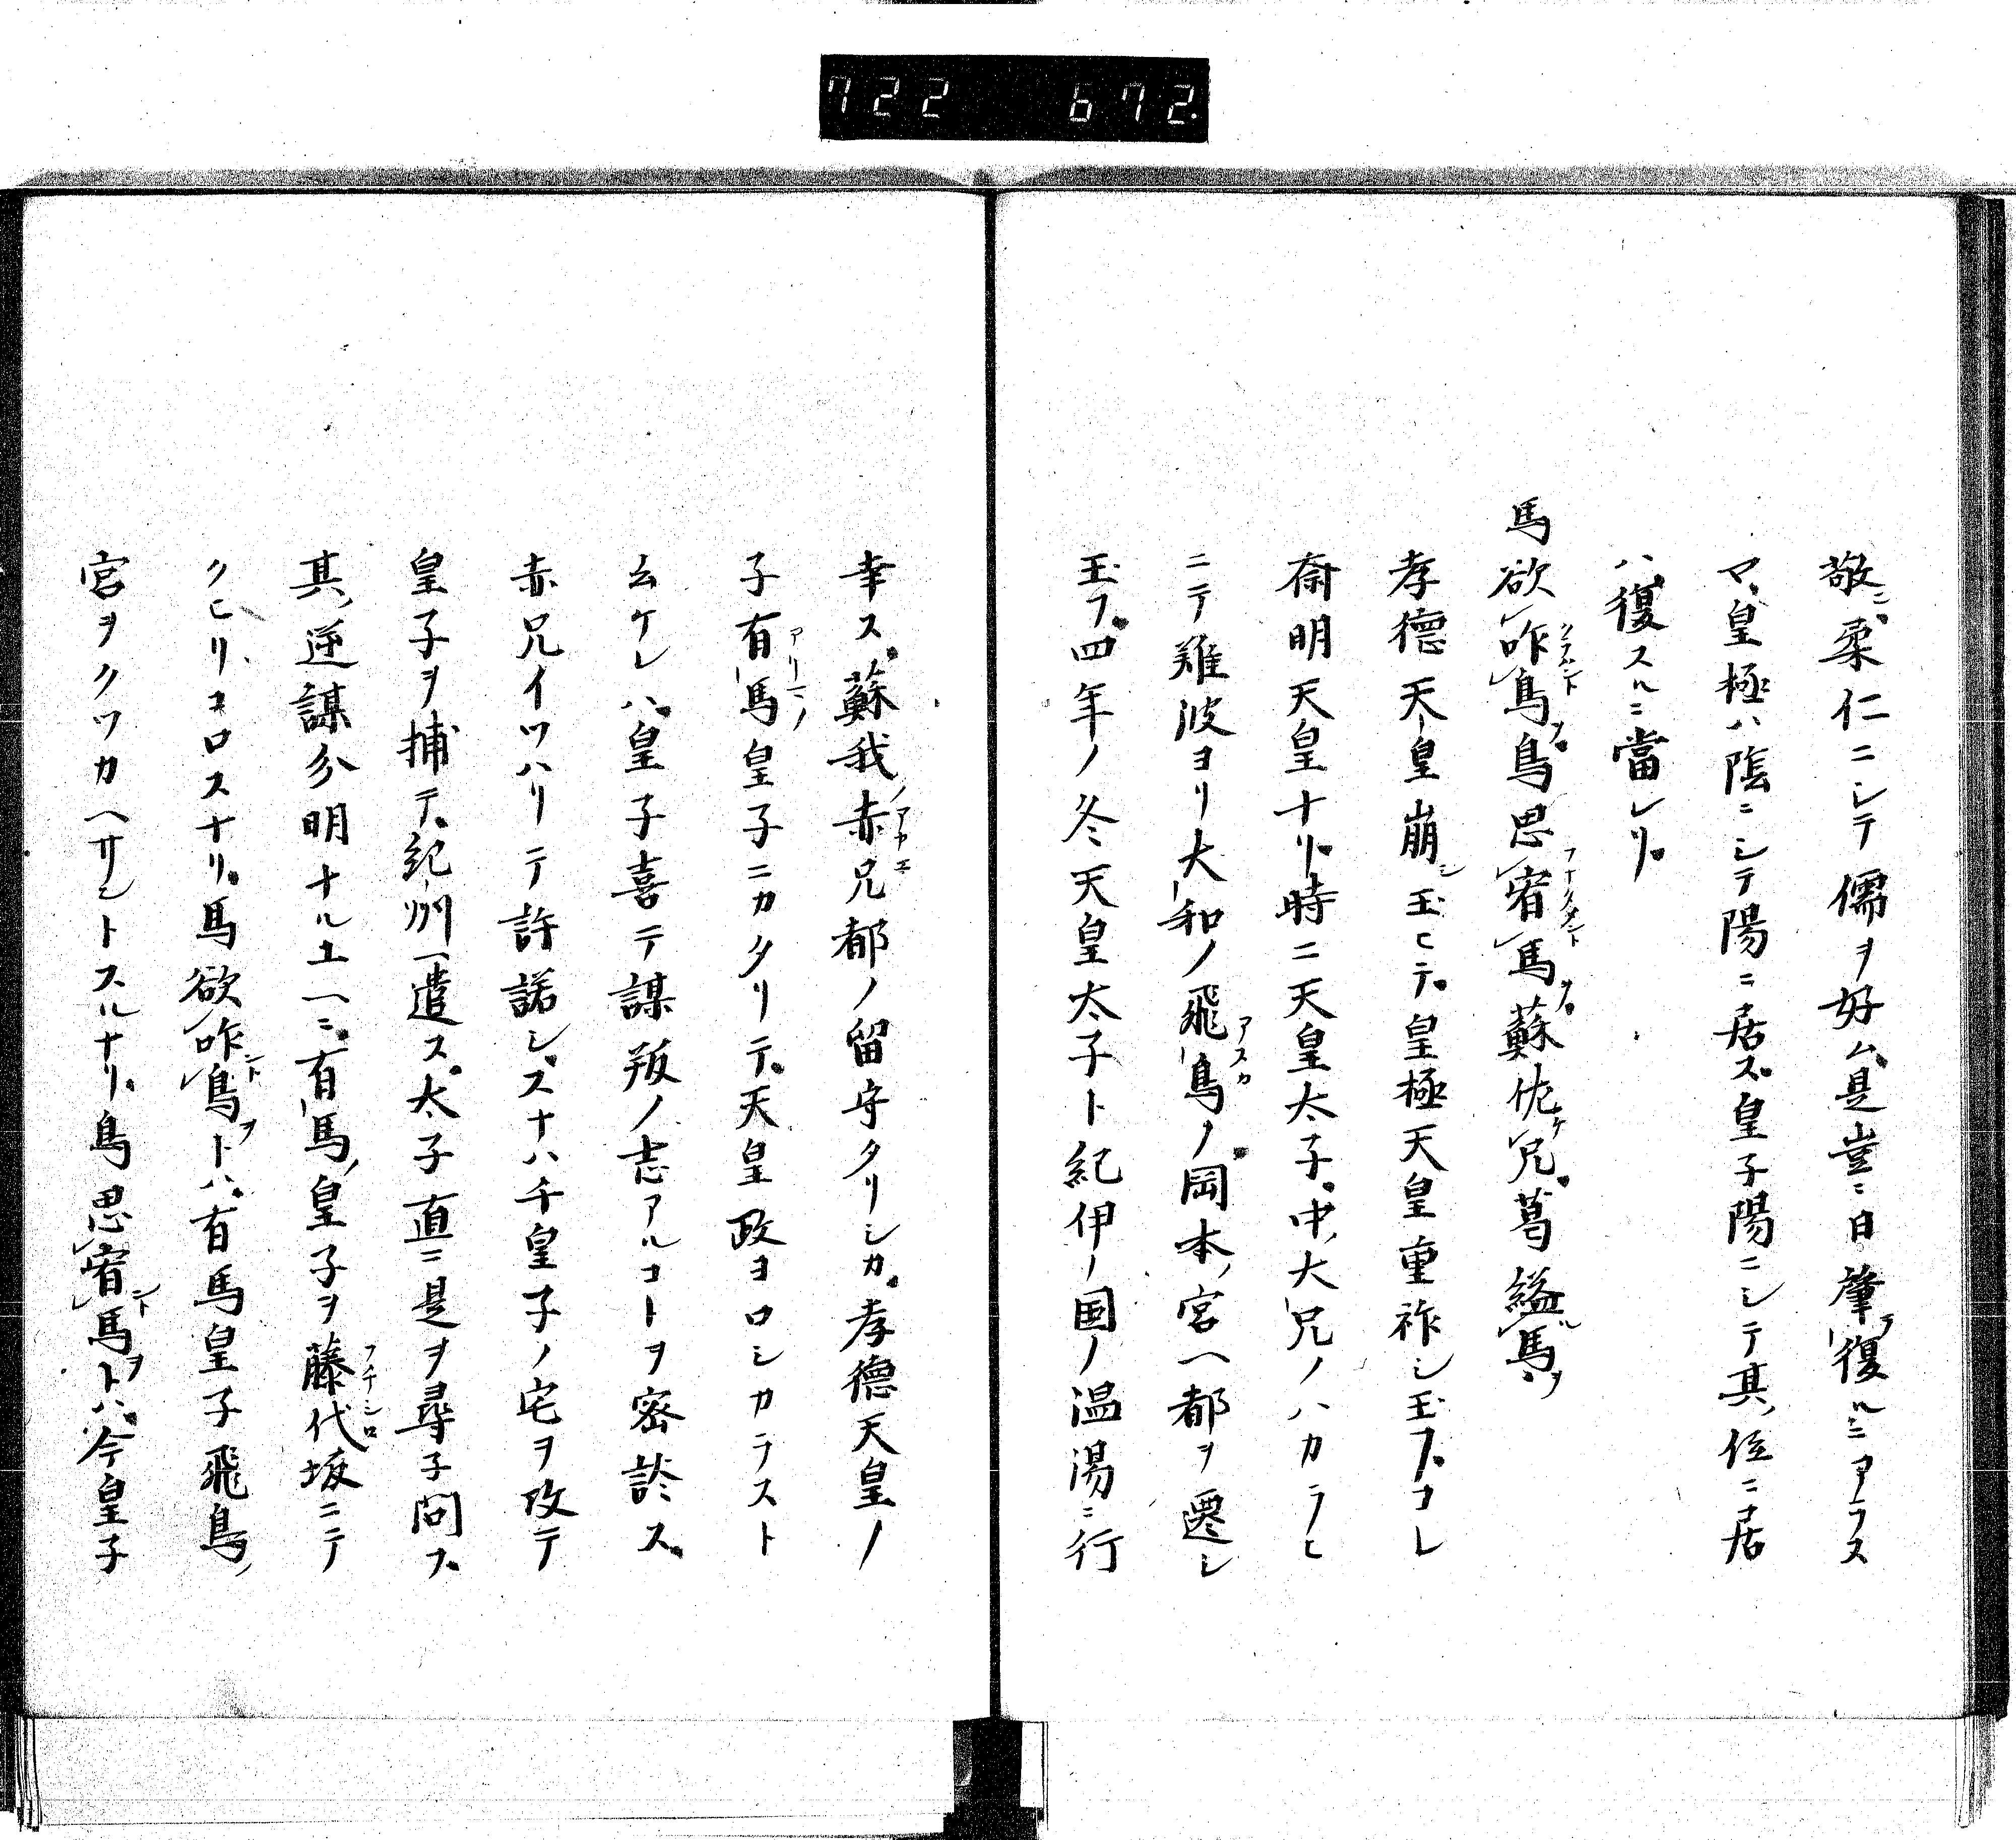 722 672.
敬ニ柔仁ニシテ儒ヲ好ム是豈ニ日肇テ復ルニアラス
マヽ皇極ハ陰ニシテ陽ニ居ス皇子陽ニシテ其位ニ居
ハ復スルニ當レリ
馬欲咋鳥鳥思宥馬蘇佐兄葛縊馬
孝德天皇崩シ玉ヒテ皇極天皇重祚シ玉フコレ
斎明天皇ナリ時ニ天皇太子中大兄ノハカラヒ
ニテ難波ヨリ大和ノ飛鳥ノ岡本ノ宮ヘ都ヲ遷シ
玉フ四年ノ冬天皇太子ト紀伊ノ国ノ温湯ニ行
幸ス蘇我ノ赤兄都ノ留守タリシカ孝德天皇ノ
子有馬皇子ニカタリテ天皇政ヨロシカラスト
云ケレハ皇子喜テ謀叛ノ志アルコトヲ密談ス
赤兄イツハリテ許諾シスナハチ皇子ノ宅ヲ攻テ
皇子ヲ捕テ紀州ヘ遣ス太子直ニ是ヲ尋子問フ
其逆謀分明ナル上ヘニ有馬ノ皇子ヲ藤代坂ニテ
クヒリコロスナリ馬欲咋鳥トハ有馬皇子飛鳥ノ
宮ヲクツカヘサントスルナリ鳥思宥馬トハ今皇子